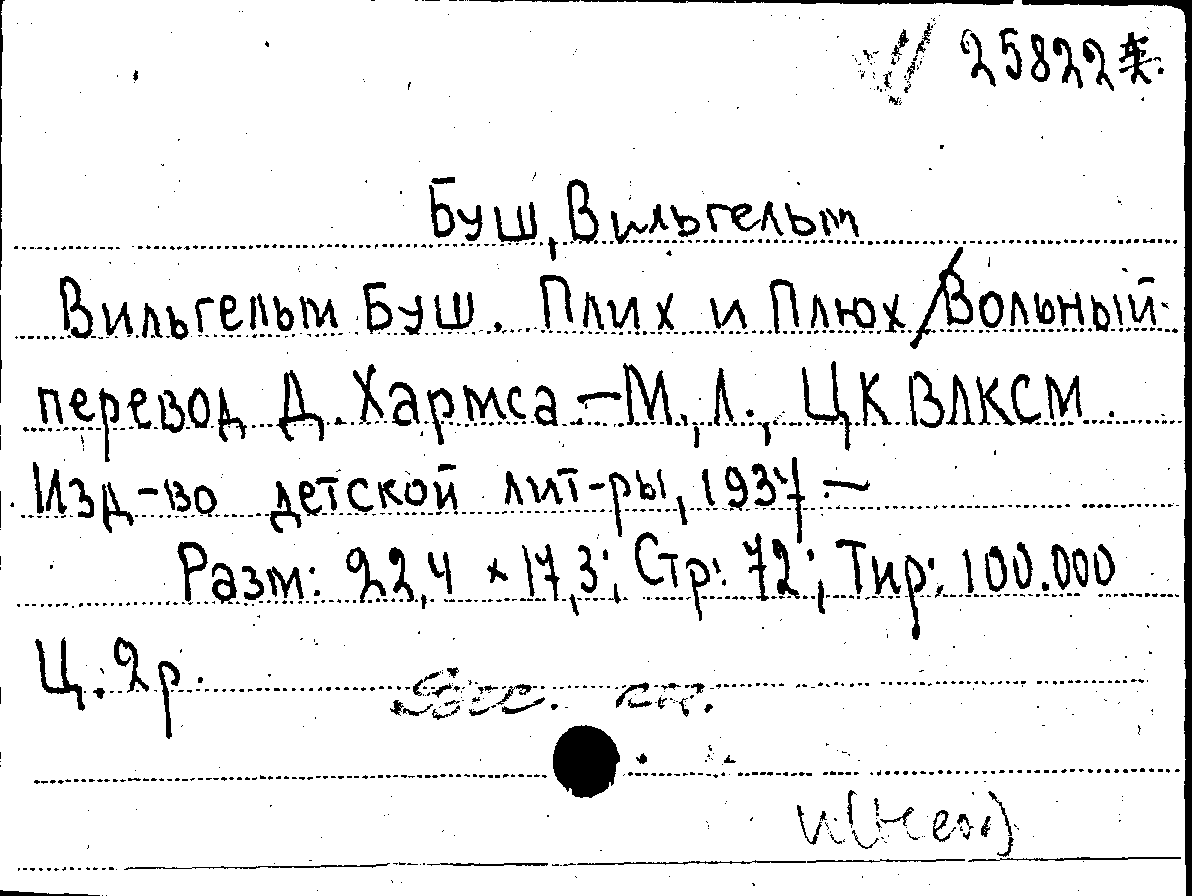 25822
Буш, Вильгельм
Вильгельм Буш. Плих и Плюх / Вольный
перевод Д. Хармса. – М., Л., ЦК ВЛКСМ.
Изд-во детской лит-ры, 1937. –
Разм: 22,4 × 17,3; Стр: 72; Тир: 100.000
Ц. 2р.